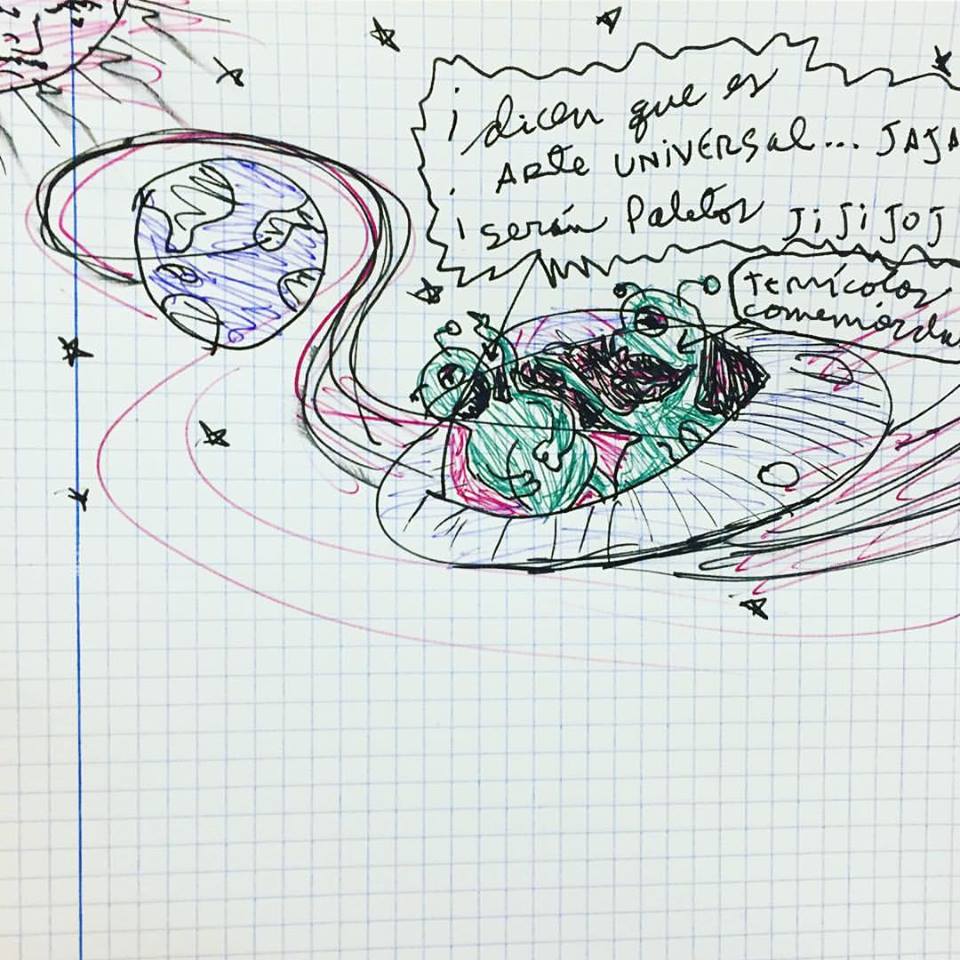 ¡dicen que es
ARTE UNIVERSAL... JAJA
¡serán Paletos JiJiJOJ
terrícolas
comemierda